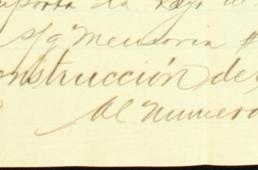 importa la
s/g Memoria
onstrucción de
Al numero